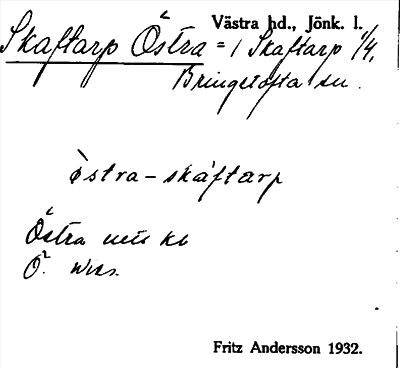 Västra hd., Jönk. l.
Skaftarp Östra = 1 Skaftarp 1/4,
Bringetofta sn.
östra-skáftarp
Östra
Ö.
Fritz Andersson 1932.